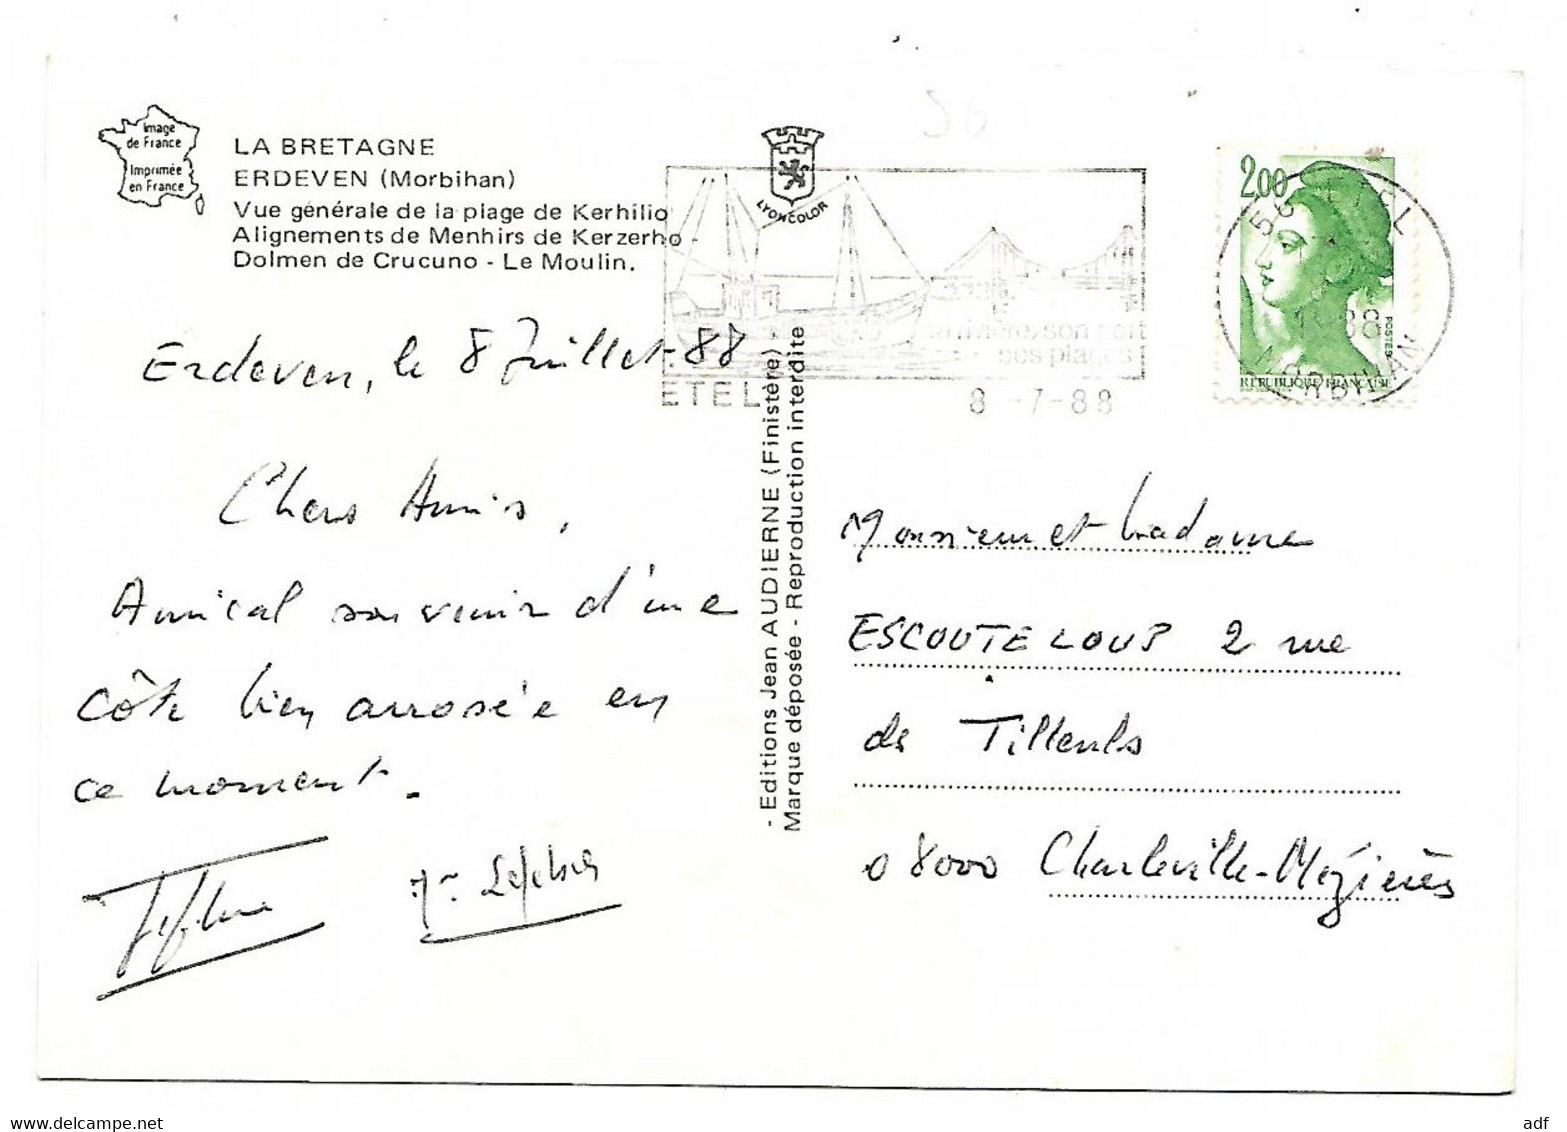 Image
de France
Imprimée
en France
LA BRETAGNE
ERDEVEN (Morbihan)
Vue générale de la plage de Kerhilio
Alignements de Menhirs de Kerzerho -
Dolmen de Crucuno - Le Moulin.
LYONCOLOR
rivière, son port
ses plages
ETEL
8 -7-88
2,00
POSTES
RÉPUBLIQUE FRANÇAISE
56 ETEL
MORBIHAN
Erdeven, le 8 Juillet 88
Chers Amis,
Amical souvenir d'une
côte bien arrosée en
ce moment.
Lefebvre
- Editions Jean AUDIERNE (Finistère) -
Marque déposée - Reproduction interdite
Monsieur et Madame
ESCOUTELOUP 2 rue
de Tilleuls
08000 Charleville-Mézières
adf